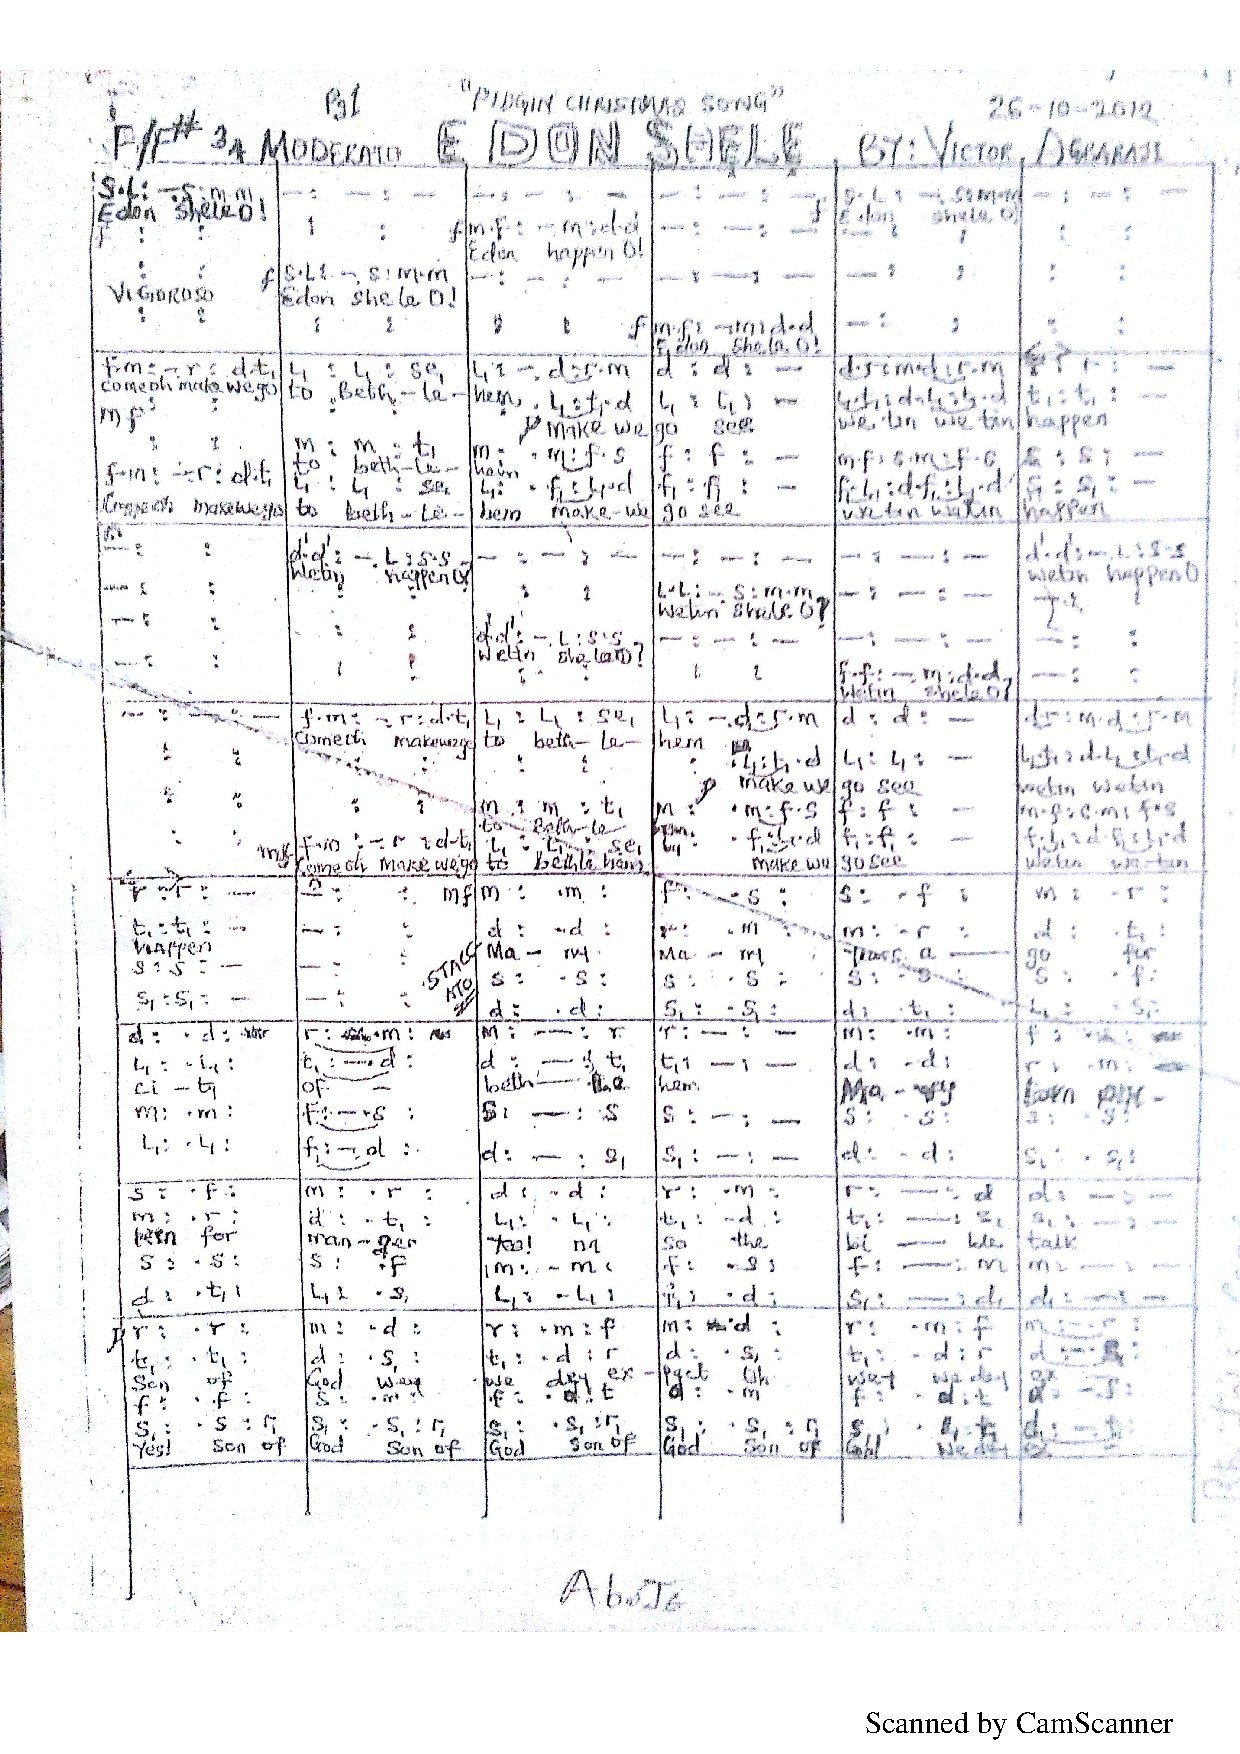 Pg1 "PIDGIN CHRISTMAS SONG" 26-10-2012
F/F# 3/4 MODERATO E DON SHELE BY: VICTOR AGBARAJI
S.L: -.S:m.m - : - : - - : - : - - : - : - S.L: -.S:m.m - : - : -
Edon Shele O! Edon Shele O!
f : : : : f m.f: -.m:d.d - : - : - - : : : :
Edon happen O!
: : f S.L: -.S:m.m - : - : - - : : - : : : :
VIGOROSO Edon Shele O!
: : : : : : f m.f: -.m:d.d - : : : :
Edon Shele O!
f.m: -.r: d.t₁ L₁ : L₁ : se₁ L₁: -.d:r.m d : d : - d.r:m.d:r.m r : r : -
comeoh make we go to Beth-le- hem, . L₁:t₁.d L₁ : L₁ : - L₁.t₁:d.L₁:t₁.d t₁ : t₁ : -
mf make we go see we tin we tin happen
: : m : m : t₁ m : .m:f.s f : f : - m.f:s.m:f.s s : s : -
to beth-le- hem
f.m: -.r: d.t₁ L₁ : L₁ : se₁ L₁: . f₁:L₁.d f₁ : f₁ : - f₁.L₁:d.f₁:L₁.d s₁ : s₁ : -
Comeoh make we go to beth-le- hem make-we go see wetin wetin happen
- : : d'.d': -.L:s.s - : - : - - : - : - - : - : - d'.d': -.L:s.s
Wetin happen O? wetin happen O
- : : : : : : L.L: -.S:m.m - : - : -
Wetin Shele O?
- : : : : d'.d': -.L:s.s - : - : - - : - : - - : :
wetin shele O?
- : : : : : : : : f.f: -.m:d.d - : :
wetin shele O?
- : - : - f.m: -.r:d.t₁ L₁ : L₁ : se₁ L₁: -.d:r.m d : d : - d.r:m.d:r.m
Comeoh make we go to beth-le- hem
: : : : : : : . L₁:t₁.d L₁ : L₁ : - L₁.t₁:d.L₁:t₁.d
make we go see wetin wetin
: : : : m : m : t₁ m : .m:f.s f : f : - m.f:s.m:f.s
to Beth-le hem
: : mf f.m: -.r:d.t₁ L₁ : L₁ : se₁ L₁: . f₁:L₁.d f₁ : f₁ : - f₁.L₁:d.f₁:L₁.d
Comeoh make we go to bethle hem make we go see wetin we-tin
r : r : - - : : mf m : .m : f : .s : s : .f : m : .r :
t₁ : t₁ : - - : : d : .d : r : .m : m : .r d : .t₁ :
happen Ma - ry Ma - ry pass a go for
s : s : - - : : STACCATO s : .s : s : .s : s : .s : s : .f :
s₁ : s₁ : - - : : d : .d : s₁ : .s₁ : d : .t₁ : L₁ : .s₁ :
d : .d : r : .m : m : - : r r : - : - m : .m :
L₁ : .L₁ : t₁ : -.d : d : - : t₁ t₁ : - : - d : .d : r : .m :
ci - ty of - beth hem Ma - ry born
m : .m : f : -.s : s : - : s s : - : - s : .s : s : .s :
L₁ : .L₁ : f₁ : -.d : d : - : s₁ s₁ : - : - d : .d : s₁ : .s₁ :
s : .f : m : .r : d : .d : r : .m : r : - : d d : - : -
m : .r : d : .t₁ : L₁ : .L₁ : t₁ : .d : t₁ : - : s₁ s₁ : - : -
for man-ger Too! na so the bi ble talk
s : .s : s : .f m : .m : f : .s : f : - : m m : - : -
d : .t₁ : L₁ : .s₁ L₁ : .L₁ : f₁ : .d : s₁ : - : d₁ d₁ : - : -
r : .r : m : .d : r : .m : f m : .d : r : .m : f m : -.r :
t₁ : .t₁ : d : .s₁ : t₁ : .d : r d : .s₁ : t₁ : .d : r
Son of God wey we dey ex - pect Oh wey we dey ex
f : .f : s : .m : f : .d : t d : .m f : .d : t
s₁ : .s : r₁ s₁ : .s₁ : r₁ s₁ : .s₁ : r₁ s₁ : .s : r₁ s₁ : .s₁ : t₁ d₁ : -.t₁ :
Yes! Son of God Son of God Son of God Son of God We dey ex
Abuja
Scanned by CamScanner